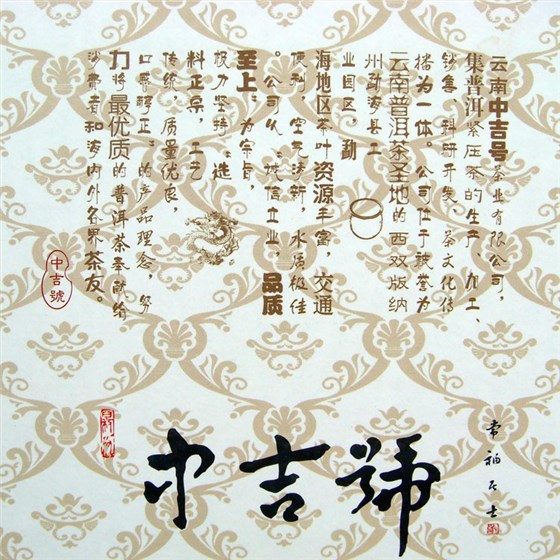 云南中吉号茶业有限公司，
集普洱紧压茶的生产、加工、
销售、科研开发、茶文化传
播为一体。公司位于被誉为
云南普洱茶圣地的西双版纳
州勐海县工
业园区，勐
海地区茶叶资源丰富，交通
便利，空气清新，水质极佳
。公司以“诚信立业，品质
至上”为宗旨，
极力坚持“选
料正宗，工艺
传统，质量优良，
口感醇正”的产品理念，努
力将最优质的普洱茶奉献给
消费者和海内外各界茶友。
中吉號
中吉號